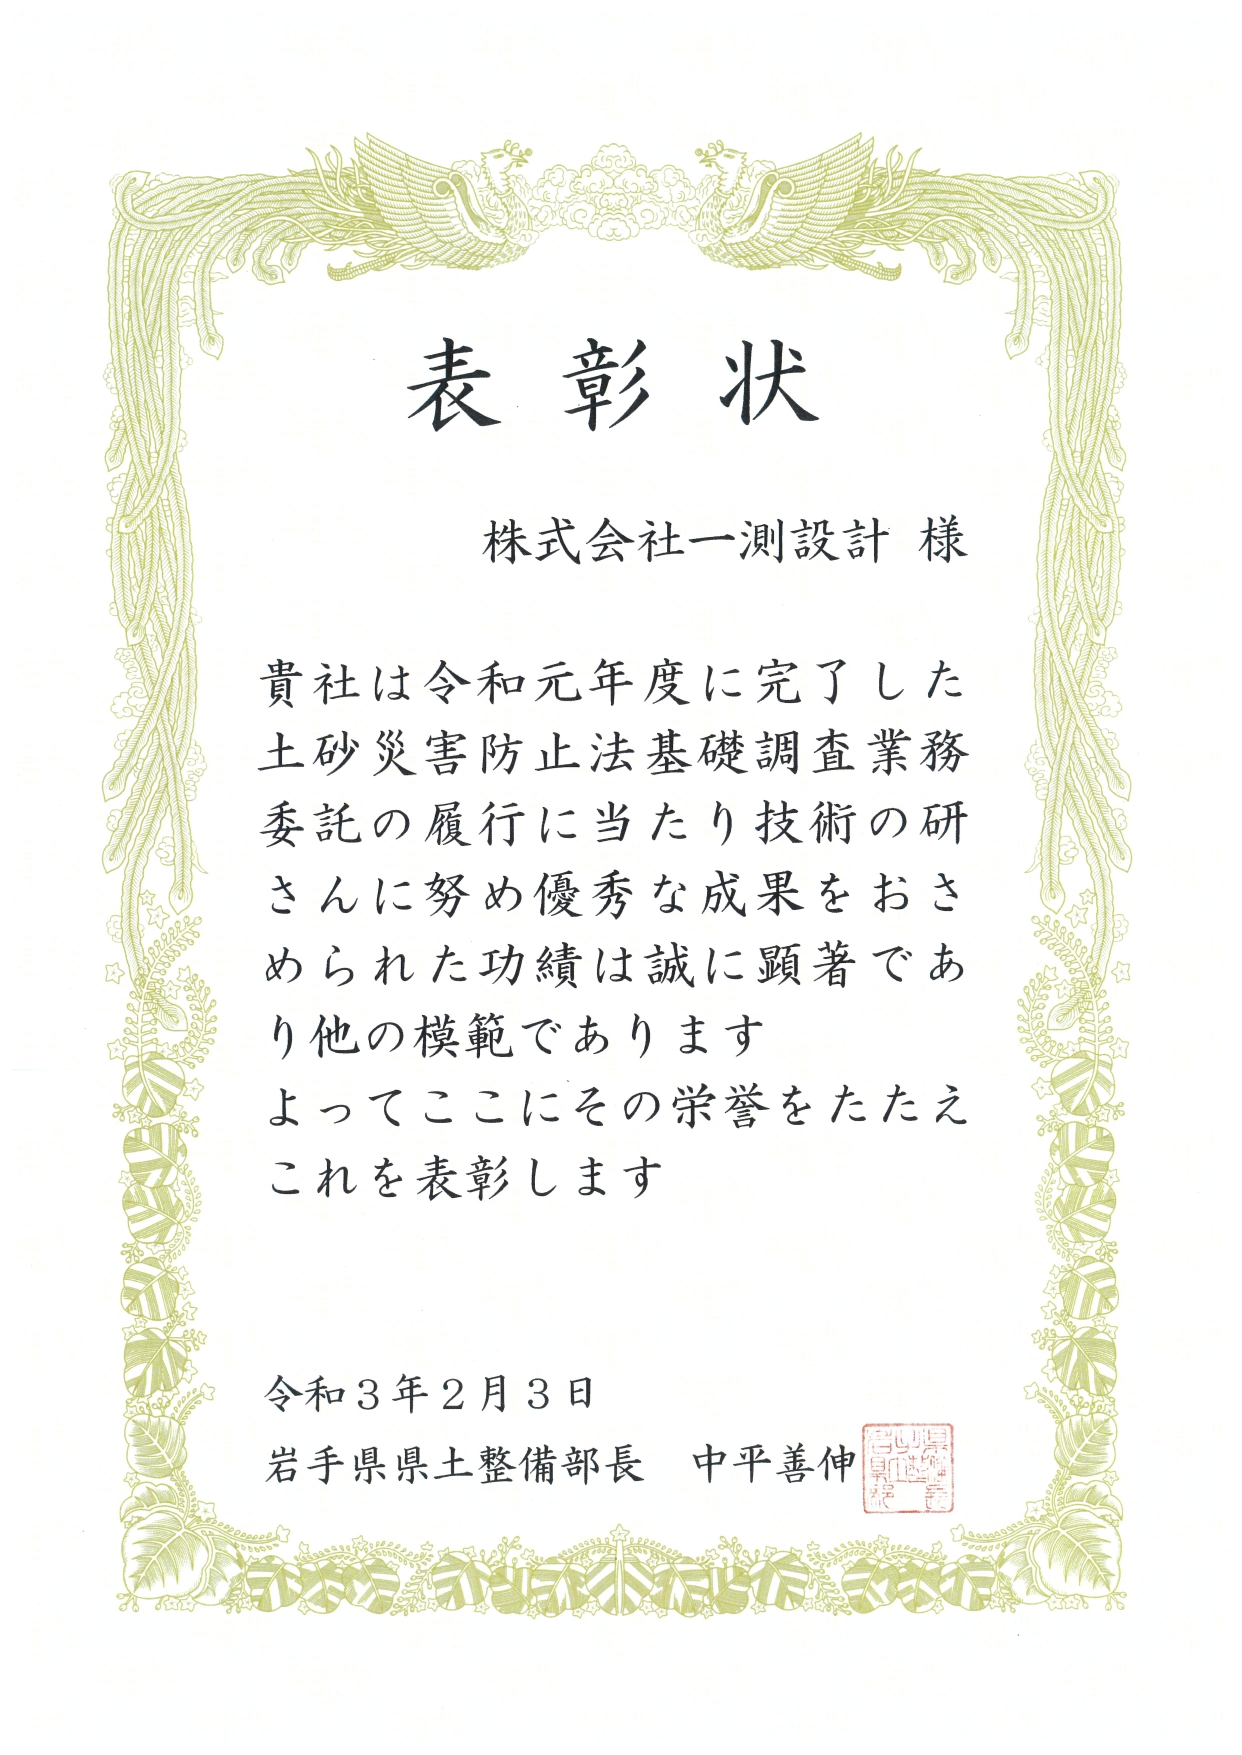 表彰状
株式会社一測設計 様
貴社は令和元年度に完了した
土砂災害防止法基礎調査業務
委託の履行に当たり技術の研
さんに努め優秀な成果をおさ
められた功績は誠に顕著であ
り他の模範であります
よってここにその栄誉をたたえ
これを表彰します
令和３年２月３日
岩手県県土整備部長　中平善伸